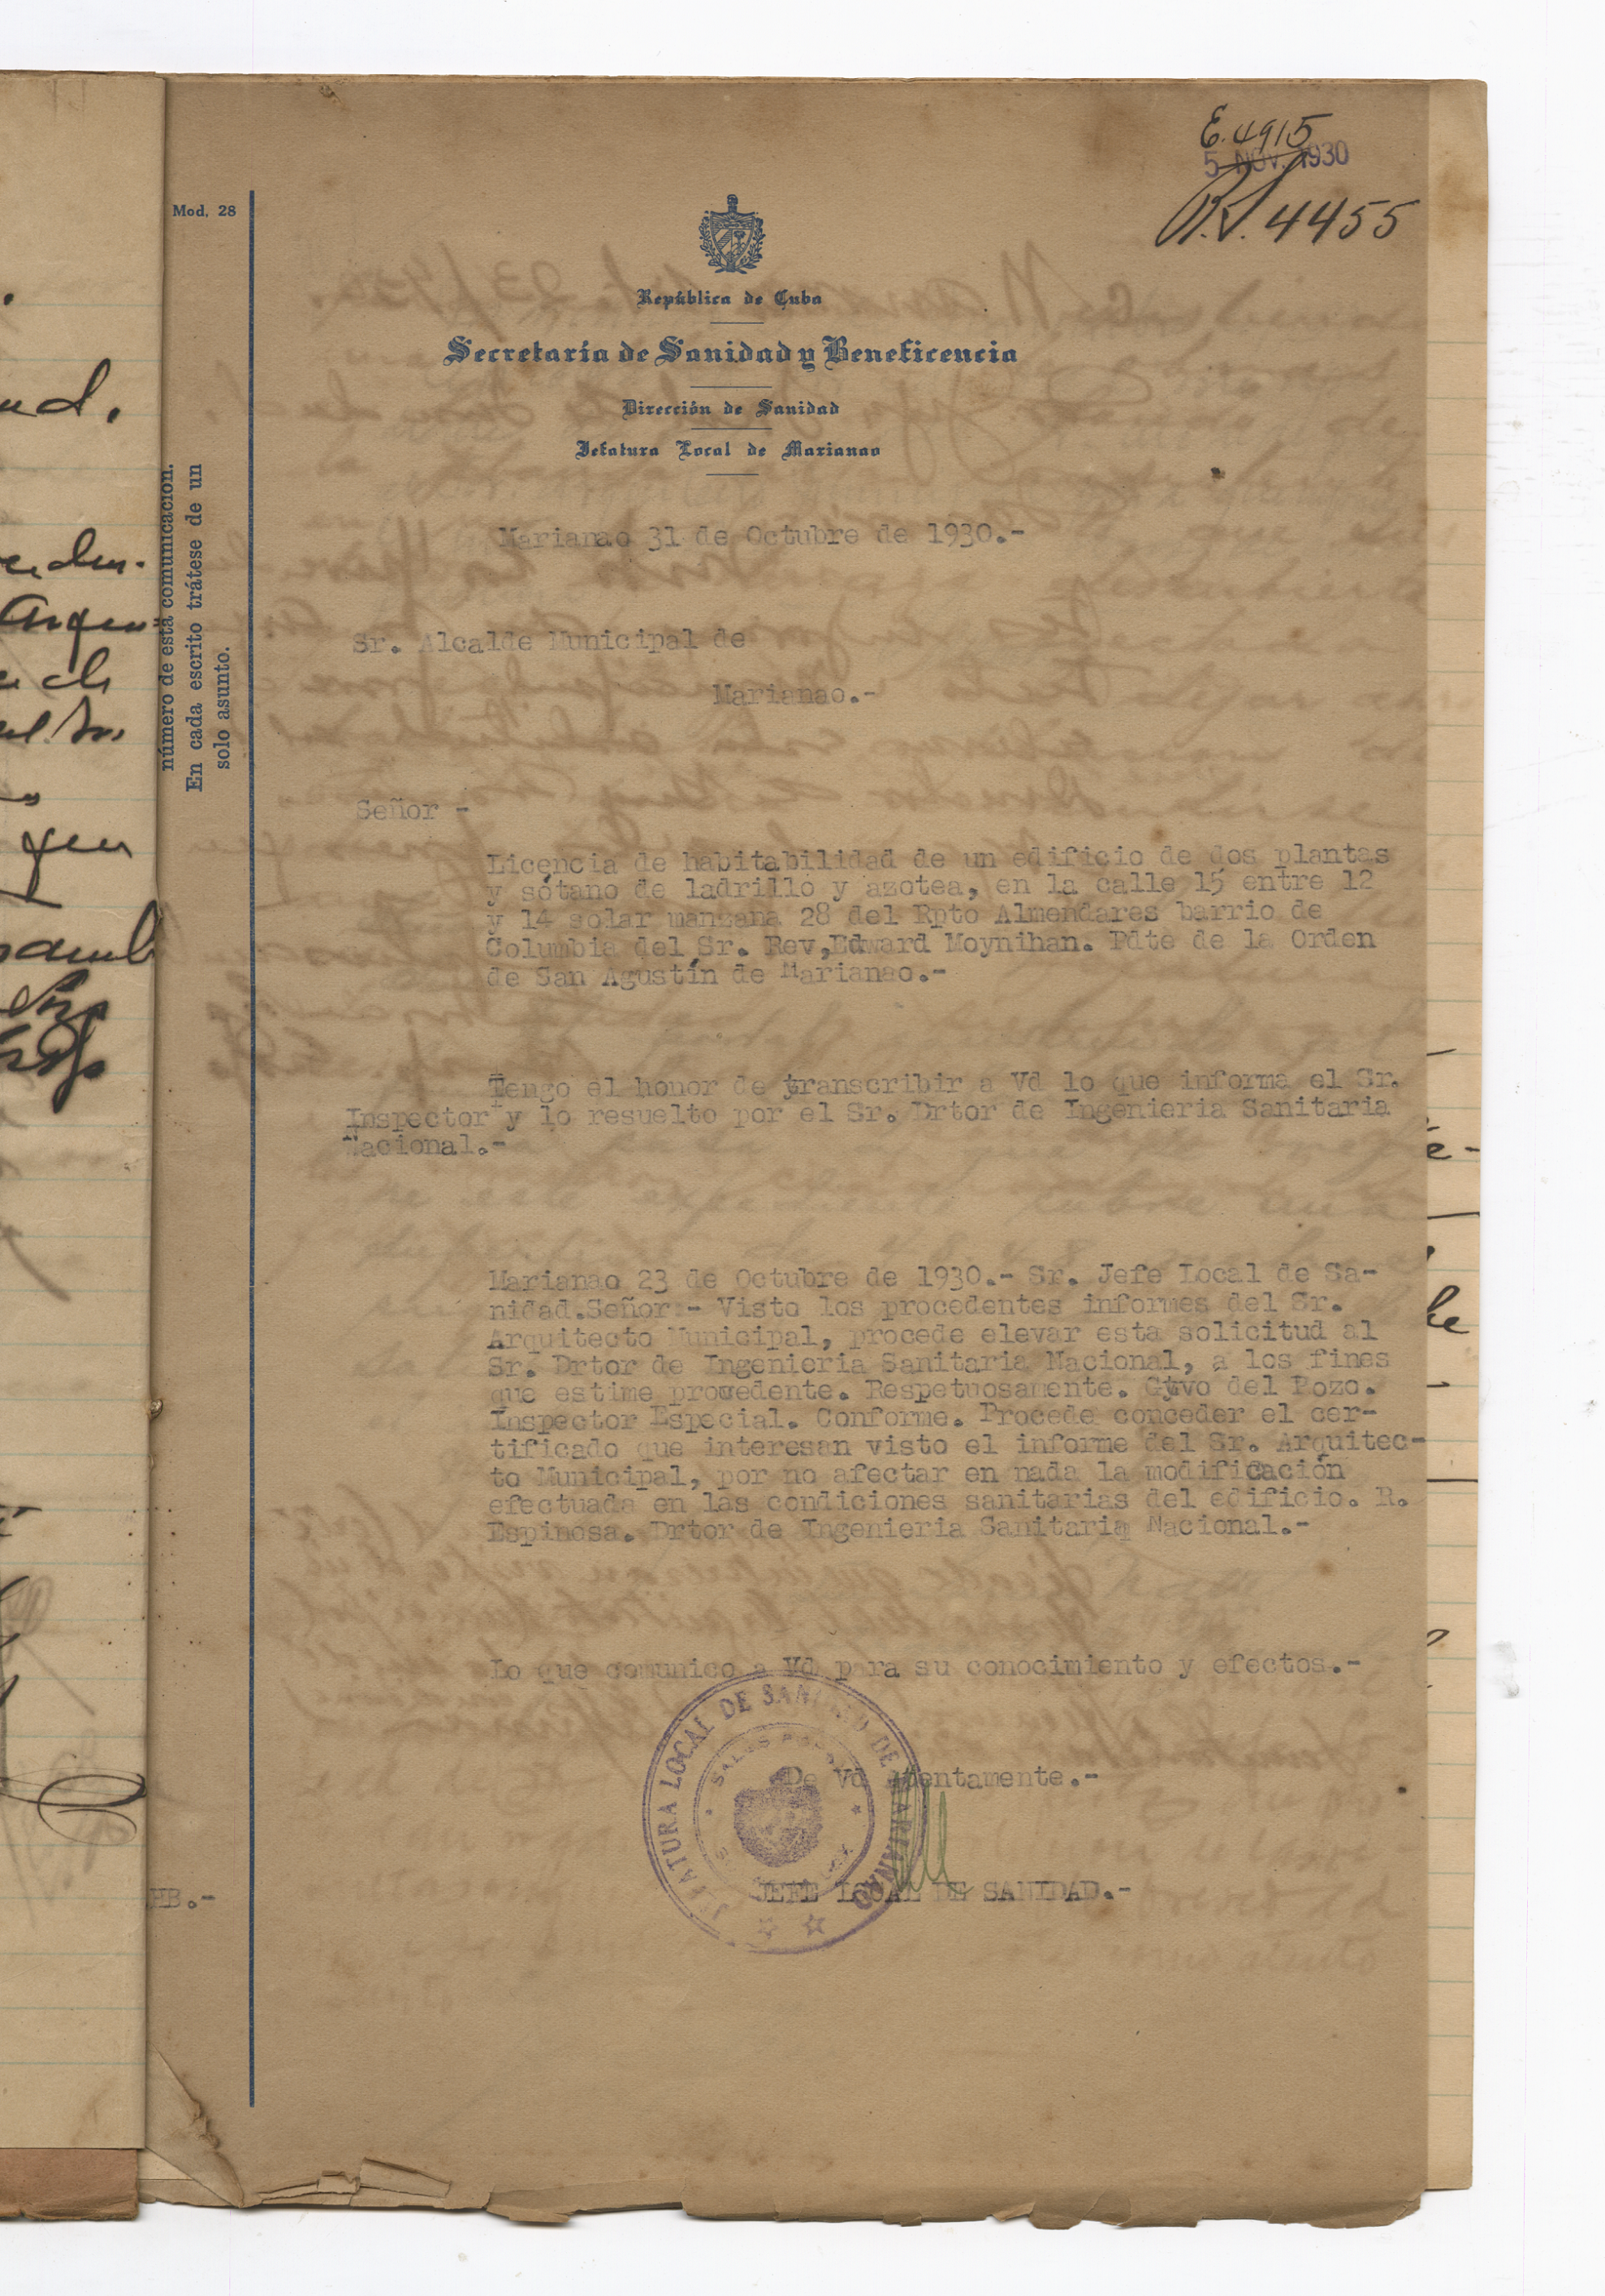 E. 4915
5 NOV. 1930
R.S. 4455
Mod. 28
República de Cuba
Secretaría de Sanidad y Beneficencia
Dirección de Sanidad
Jefatura Local de Marianao
número de esta comunicación.
En cada escrito trátese de un
solo asunto.
Marianao 31 de Octubre de 1930.-
Sr. Alcalde Municipal de
Marianao.-
Señor -
Licencia de habitabilidad de un edificio de dos plantas
y sótano de ladrillo y azotea, en la calle 15 entre 12
y 14 solar manzana 28 del Rpto Almendares barrio de
Columbia del Sr. Rev,Edward Moynihan. Pdte de la Orden
de San Agustín de Marianao.-
Tengo el honor de transcribir a Vd lo que informa el Sr.
Inspector y lo resuelto por el Sr. Drtor de Ingenieria Sanitaria
Nacional.-
Marianao 23 de Octubre de 1930.- Sr. Jefe Local de Sa-
nidad.Señor:- Visto los procedentes informes del Sr.
Arquitecto Municipal, procede elevar esta solicitud al
Sr. Drtor de Ingenieria Sanitaria Nacional, a los fines
que estime procedente. Respetuosamente. Gtvo del Pozo.
Inspector Especial. Conforme. Procede conceder el cer-
tificado que interesan visto el informe del Sr. Arquitec-
to Municipal, por no afectar en nada la modificación
efectuada en las condiciones sanitarias del edificio. R.
Espinosa. Drtor de Ingenieria Sanitaria Nacional.-
Lo que comunico a Vd para su conocimiento y efectos.-
De Vd atentamente.-
JEFATURA LOCAL DE SANIDAD DE MARIANAO
JEFE LOCAL DE SANIDAD.-
HB.-